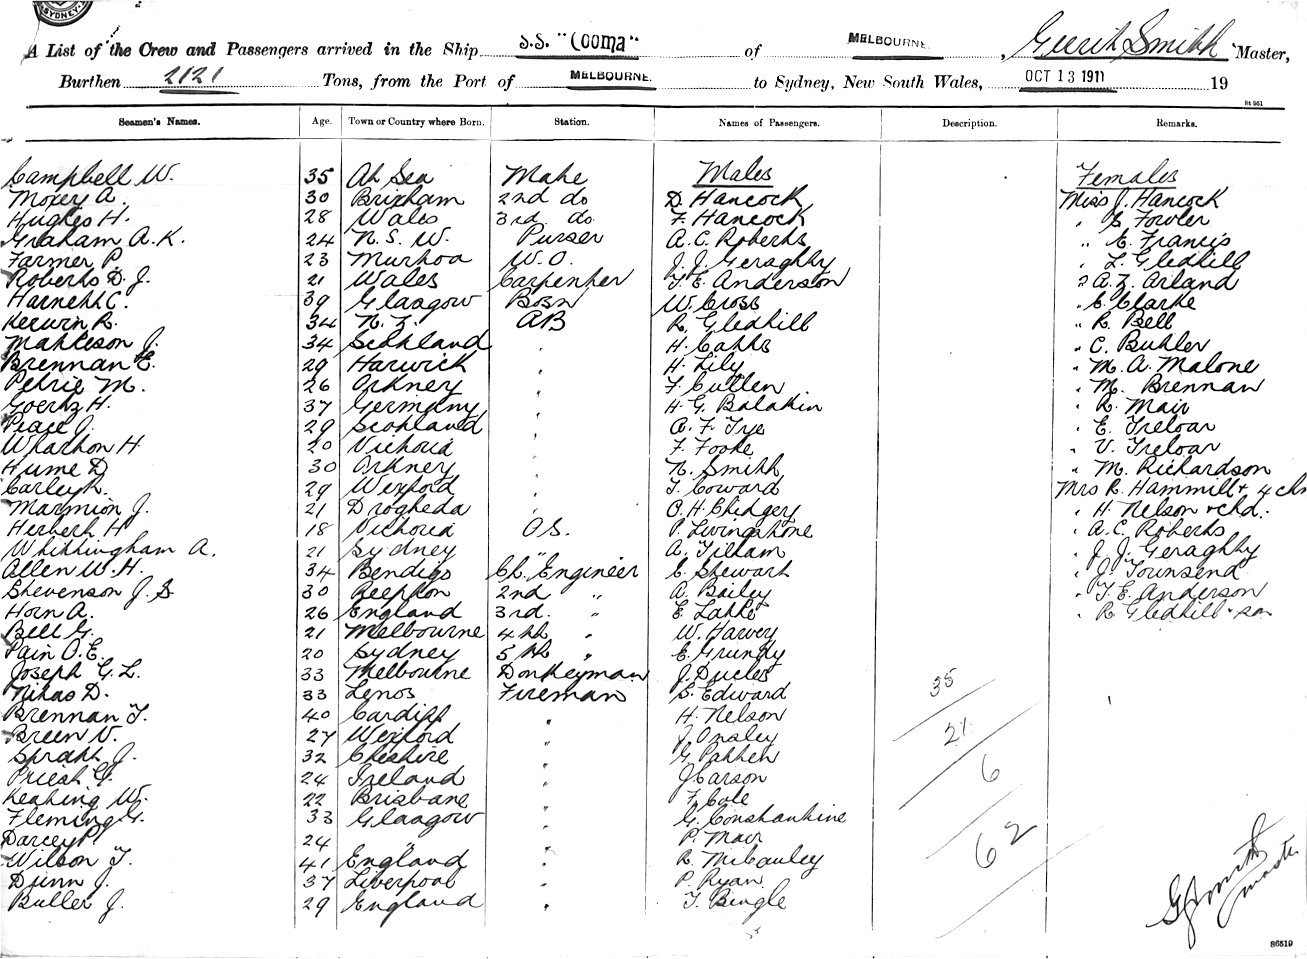 SYDNEY.
A List of the Crew and Passengers arrived in the Ship S.S. "Cooma" of MELBOURNE. , Gerrit Smith Master,
Burthen 2121 Tons, from the Port of MELBOURNE. to Sydney, New South Wales, OCT 13 1911 19
St 951
Seamen's Names. Age. Town or Country where Born. Station. Names of Passengers. Description. Remarks.
Campbell W. 35 At Sea Mate Males Females
Moxey A. 30 Brixham 2nd do D. Hancock Miss J. Hancock
Hughes H. 28 Wales 3rd do. F. Hancock " E Fowler
Graham A. K. 24 N. S. W. Purser A. C. Roberts " E. Francis
Farmer P. 23 Murtoa W. O. J. J. Geraghty " L. Gledhill
Roberts D. J. 21 Wales Carpenter T. E. Anderson " A. Z. Arland
Harnett C. 39 Glasgow Bosn W. Cross " E. Clarke
Kerwin R. 34 N. Z. AB R. Gledhill " R. Bell
Matheson J. 34 Scotland " H. Catts " C. Buhler
Brennan E. 29 Harwick " H. Lily " M. A. Malone
Petrie M. 26 Orkney " F. Cullen " M. Brennan
Goertz H. 37 Germany " H. G. Balakin " R. Mair
Peace J. 29 Scotland " A. F. Tye " E. Treloar
Wharton H 20 Victoria " F. Foote " V. Treloar
Hume D 30 Orkney " N. Smith " M. Richardson
Carley L. 29 Wexford " T. Coward Mrs R. Hammill + 4 chn
Marmion J. 21 Drogheda " O. H. Chidgey " H. Nelson + chd.
Herbert H 18 Victoria O.S. P. Livingstone " A. C. Roberts
Whittingham A. 21 Sydney A. Tillam " J. J. Geraghty
Allen W. H. 34 Bendigo Ch. Engineer E. Stewart " J. Townsend
Stevenson J. S. 30 Reepton 2nd " A. Bailey " T. E. Anderson
Horn A. 26 England 3rd. " E. Latte " R Gledhill + son
Bell G. 21 Melbourne 4th " W. Harvey
Pain O. E. 20 Sydney 5th " E. Grundy
Joseph G. L. 33 Melbourne Donkeyman J. Ducles 35
Nikas D. 33 Lenos Fireman S. Edward
Brennan T. 40 Cardiff " H. Nelson 21
Breen N. 27 Wexford " J. Onsley
Spratt J. 32 Cheshire " G. Patten 6
Priest G. 24 Ireland " J Carson
Keating W. 22 Brisbane " F. Cole
Fleming G. 33 Glasgow " G. Constantine
Darcey P. 24 " " P. Mair 62
Wilson T. 41 England " R. McCauley
Dunn J. 37 Liverpool " P. Ryan
Butler J. 29 England " T. Bingle
G Smith
Master
86519